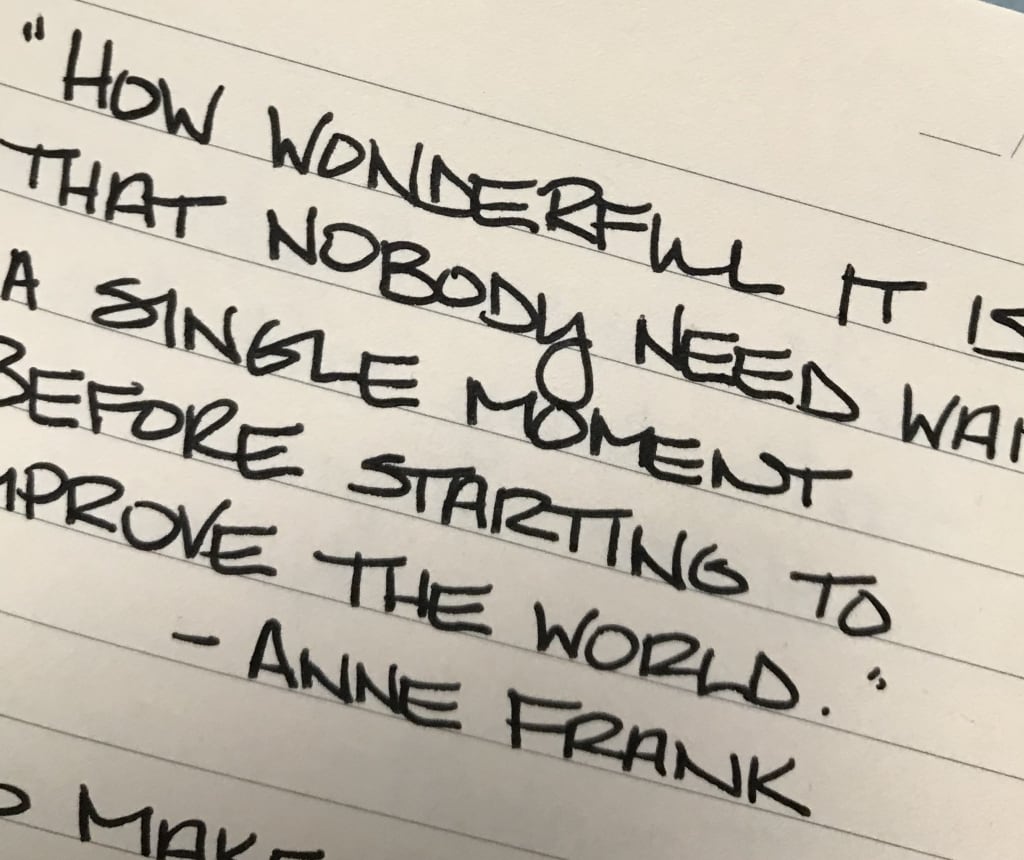 "HOW WONDERFUL IT IS
THAT NOBODY NEED
A SINGLE MOMENT
BEFORE STARTING TO
IMPROVE THE WORLD."
- ANNE FRANK
MAKE